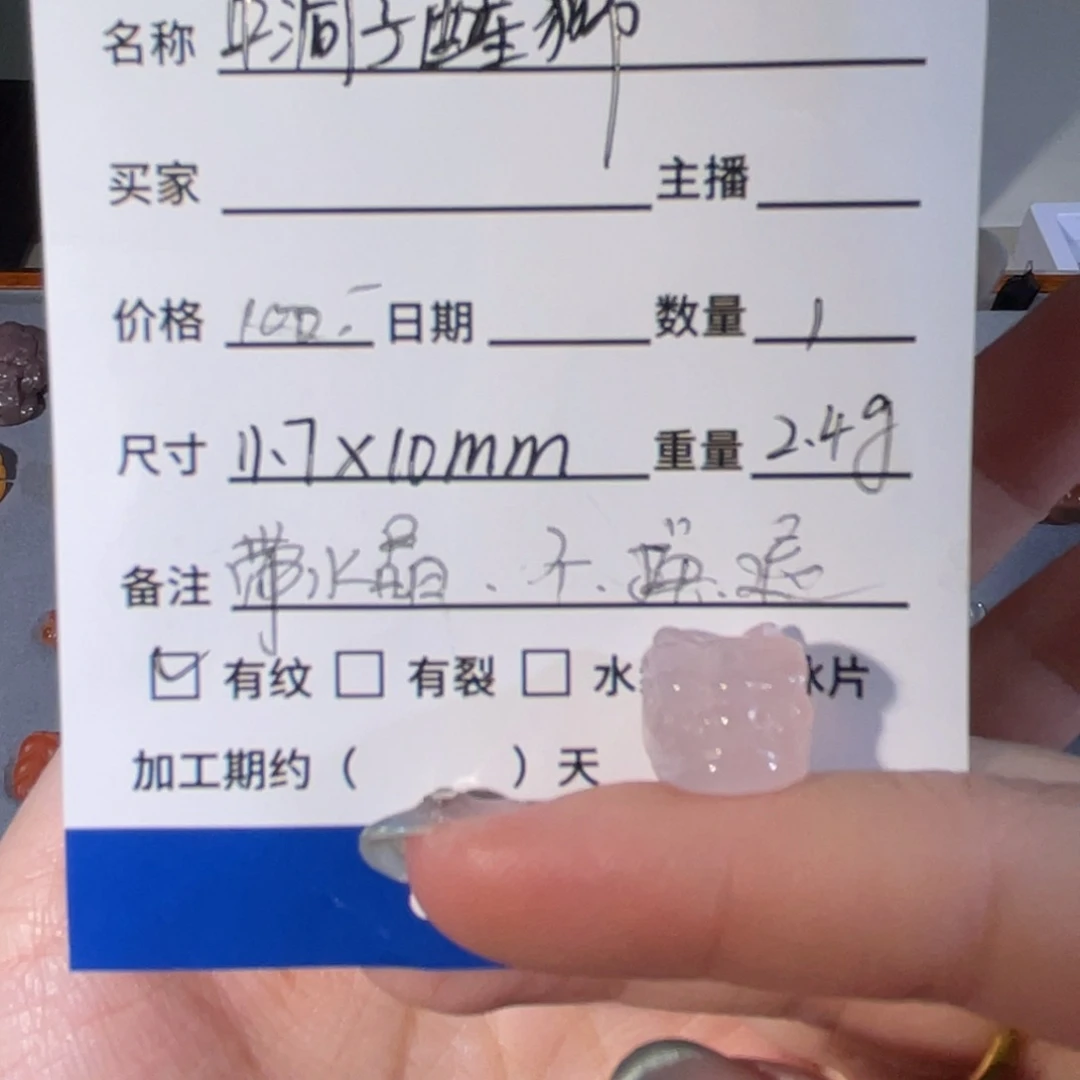 名称 平洞子醒狮
买家 主播
价格 100.- 日期 数量 1
尺寸 11.7×10mm 重量 2.4g
备注 带水晶.不.退
☑ 有纹 □ 有裂 □ 水 冰片
加工期约（ ）天